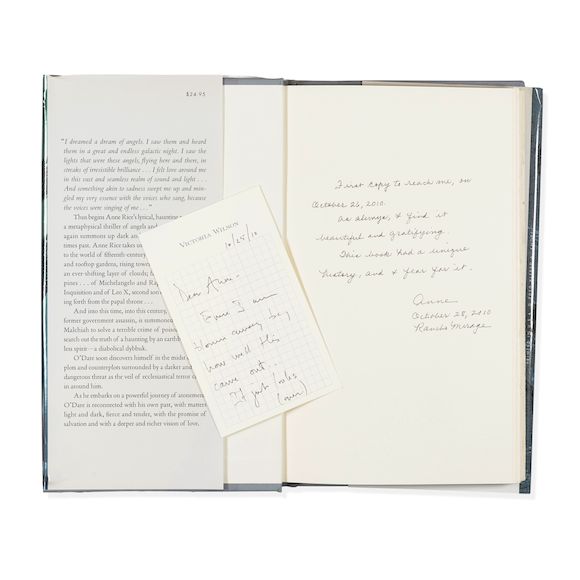 $24.95
"I dreamed a dream of angels. I saw them and heard
them in a great and endless galactic night. I saw the
lights that were these angels, flying here and there, in
streaks of irresistible brilliance . . . I felt love around me
in this vast and seamless realm of sound and light . . .
And something akin to sadness swept me up and min-
gled my very essence with the voices who sang, because
the voices were singing of me . . ."
Thus begins Anne Rice's lyrical, haunting
a metaphysical thriller of angels and
again summons up dark and
times past. Anne Rice takes us
to the world of fifteenth-century
and rooftop gardens, rising towers
an ever-shifting layer of clouds;
pines . . . of Michelangelo and Ra
Inquisition and of Leo X, second son
ing forth from the papal throne . . .
And into this time, into this century,
former government assassin, is summoned
Malchiah to solve a terrible crime of poison
search out the truth of a haunting by an earthbound
less spirit—a diabolical dybbuk.
O'Dare soon discovers himself in the midst of
plots and counterplots surrounded by a darker and
dangerous threat as the veil of ecclesiastical terror
in around him.
As he embarks on a powerful journey of atonement,
O'Dare is reconnected with his own past, with matters
light and dark, fierce and tender, with the promise of
salvation and with a deeper and richer vision of love.
VICTORIA WILSON
10/25/10
Dear Anne -
Even I am
blown away by
how well this
came out...
It just looks
(over)
First copy to reach me, on
October 26, 2010.
As always, I find it
beautiful and gratifying.
This book had a unique
history, and I fear for it.
Anne
October 28, 2010
Rancho Mirage